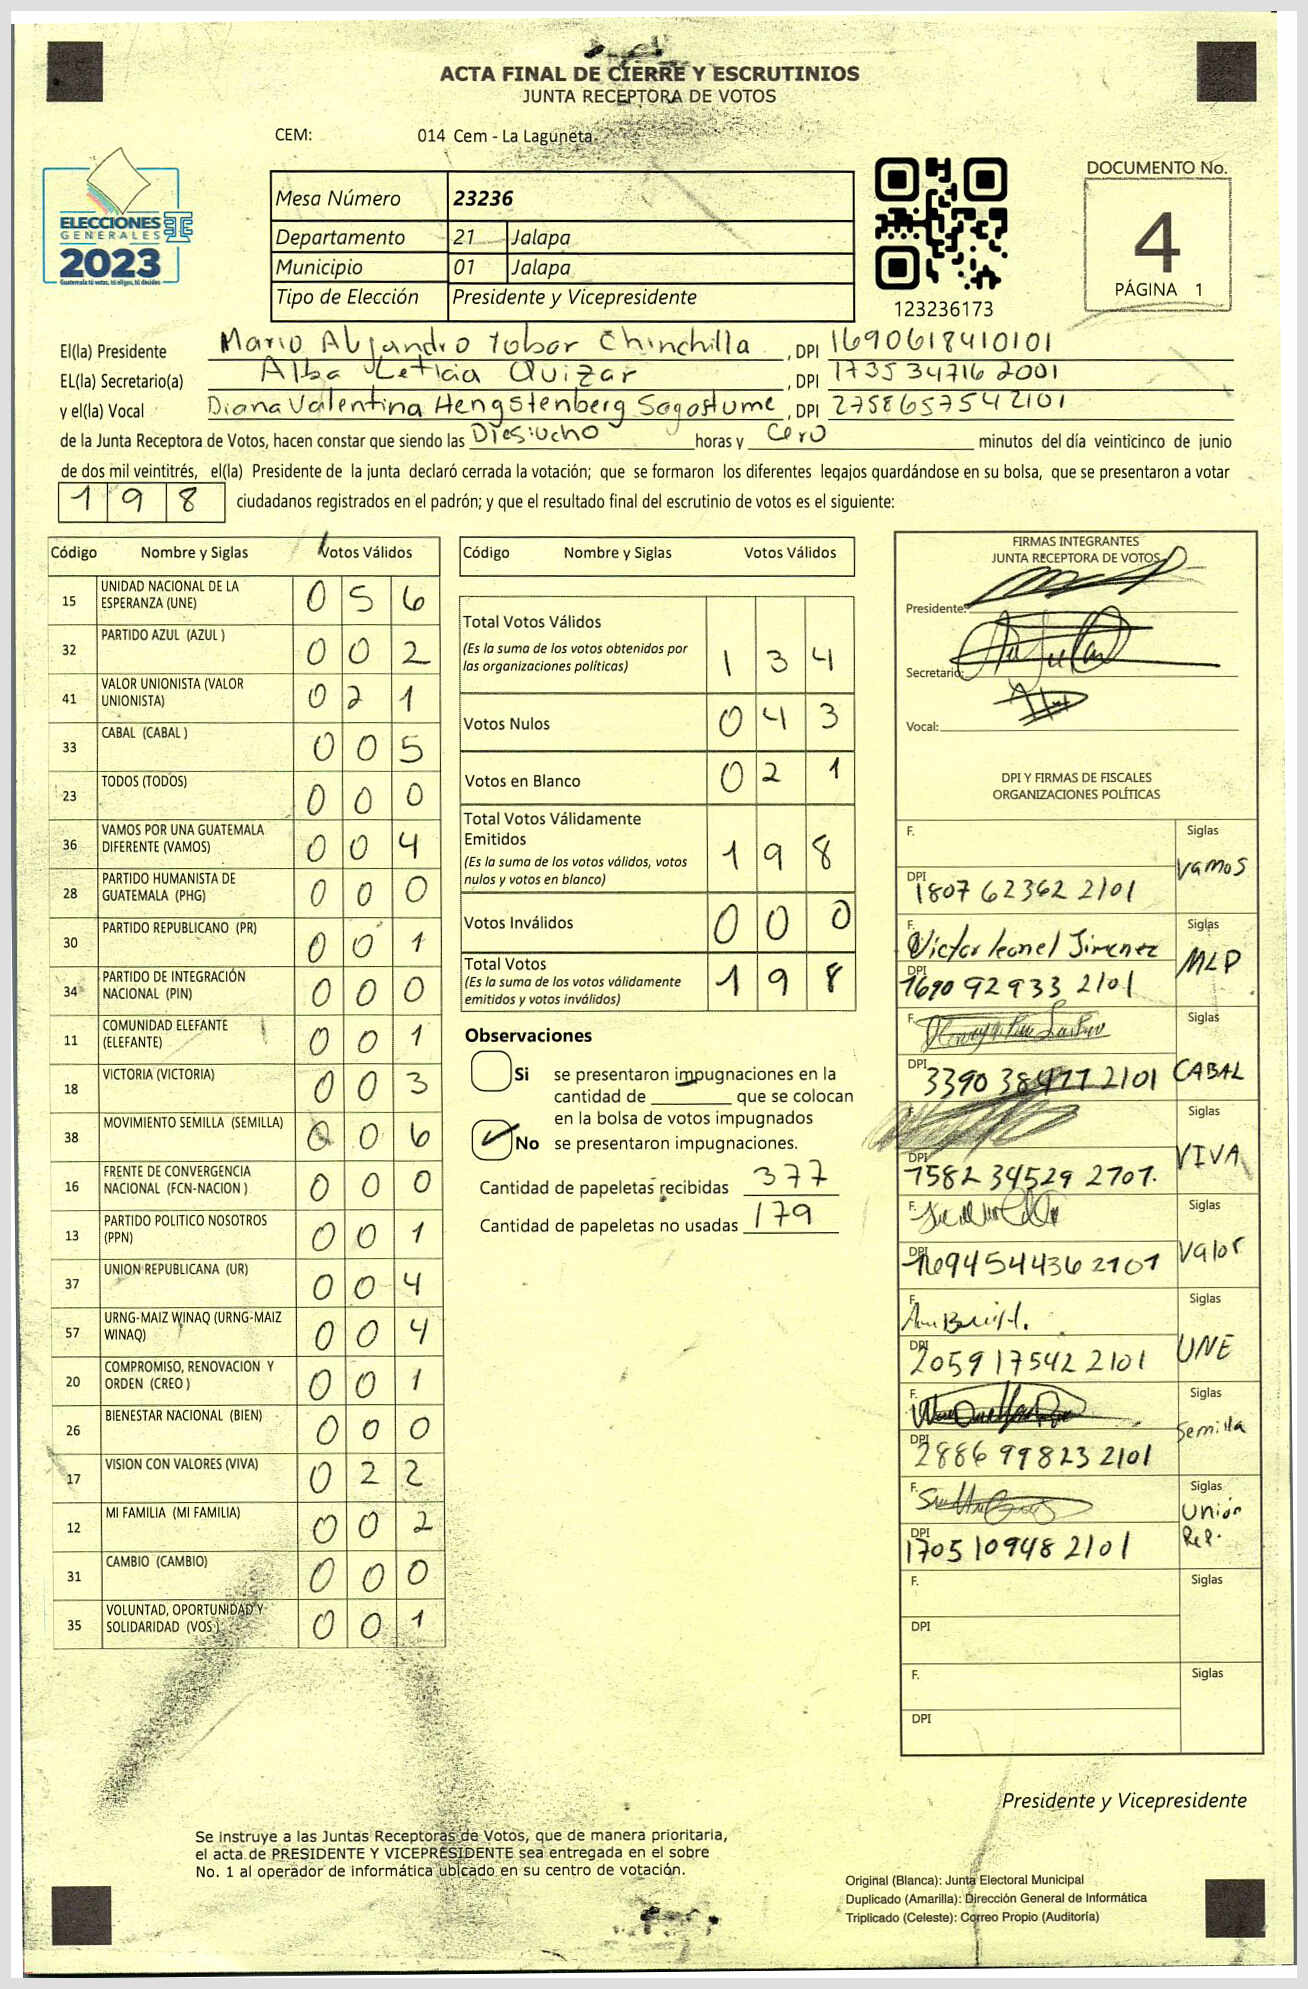 ACTA FINAL DE CIERRE Y ESCRUTINIOS
JUNTA RECEPTORA DE VOTOS
CEM: 014 Cem - La Laguneta
ELECCIONES
GENERALES
2023
Guatemala tú votas, tú eliges, tú decides
Mesa Número 23236
Departamento 21 Jalapa
Municipio 01 Jalapa
Tipo de Elección Presidente y Vicepresidente
123236173
DOCUMENTO No.
4
PÁGINA 1
El(la) Presidente Mario Alejandro Tobar Chinchilla, DPI 1690618410101
EL(la) Secretario(a) Alba Leticia Quizar, DPI 1735347162001
y el(la) Vocal Diana Valentina Hengstenberg Sagastume, DPI 2758657542101
de la Junta Receptora de Votos, hacen constar que siendo las Diesiocho horas y Cero minutos del día veinticinco de junio
de dos mil veintitrés, el(la) Presidente de la junta declaró cerrada la votación; que se formaron los diferentes legajos guardándose en su bolsa, que se presentaron a votar
198 ciudadanos registrados en el padrón; y que el resultado final del escrutinio de votos es el siguiente:
Código Nombre y Siglas Votos Válidos
15 UNIDAD NACIONAL DE LA ESPERANZA (UNE) 0 5 6
32 PARTIDO AZUL (AZUL ) 0 0 2
41 VALOR UNIONISTA (VALOR UNIONISTA) 0 2 1
33 CABAL (CABAL ) 0 0 5
23 TODOS (TODOS) 0 0 0
36 VAMOS POR UNA GUATEMALA DIFERENTE (VAMOS) 0 0 4
28 PARTIDO HUMANISTA DE GUATEMALA (PHG) 0 0 0
30 PARTIDO REPUBLICANO (PR) 0 0 1
34 PARTIDO DE INTEGRACIÓN NACIONAL (PIN) 0 0 0
11 COMUNIDAD ELEFANTE (ELEFANTE) 0 0 1
18 VICTORIA (VICTORIA) 0 0 3
38 MOVIMIENTO SEMILLA (SEMILLA) 0 0 6
16 FRENTE DE CONVERGENCIA NACIONAL (FCN-NACION ) 0 0 0
13 PARTIDO POLITICO NOSOTROS (PPN) 0 0 1
37 UNION REPUBLICANA (UR) 0 0 4
57 URNG-MAIZ WINAQ (URNG-MAIZ WINAQ) 0 0 4
20 COMPROMISO, RENOVACION Y ORDEN (CREO ) 0 0 1
26 BIENESTAR NACIONAL (BIEN) 0 0 0
17 VISION CON VALORES (VIVA) 0 2 2
12 MI FAMILIA (MI FAMILIA) 0 0 2
31 CAMBIO (CAMBIO) 0 0 0
35 VOLUNTAD, OPORTUNIDAD Y SOLIDARIDAD (VOS ) 0 0 1
Código Nombre y Siglas Votos Válidos
Total Votos Válidos
(Es la suma de los votos obtenidos por
las organizaciones politicas) 1 3 4
Votos Nulos 0 4 3
Votos en Blanco 0 2 1
Total Votos Válidamente
Emitidos
(Es la suma de los votos válidos, votos
nulos y votos en blanco) 1 9 8
Votos Inválidos 0 0 0
Total Votos
(Es la suma de los votos válidamente
emitidos y votos inválidos) 1 9 8
Observaciones
Si se presentaron impugnaciones en la
cantidad de ________ que se colocan
en la bolsa de votos impugnados
No se presentaron impugnaciones.
Cantidad de papeletas recibidas 377
Cantidad de papeletas no usadas 179
FIRMAS INTEGRANTES
JUNTA RECEPTORA DE VOTOS
Presidente:
Secretario:
Vocal:
DPI Y FIRMAS DE FISCALES
ORGANIZACIONES POLÍTICAS
F. Siglas
Vamos
DPI 1807 62362 2101
F. Victor leonel Jimenez Siglas
MLP
DPI 1690 92933 2101
F. Siglas
DPI 3390 38477 2101 CABAL
F. Siglas
VIVA
DPI 1582 34529 2101.
F. Siglas
Valor
DPI 1694544362101
F. Siglas
UNE
DPI 2059 17542 2101
F. Siglas
Semilla
DPI 2886 99823 2101
F. Siglas
Unión
Rep.
DPI 1705 10948 2101
F. Siglas
DPI
F. Siglas
DPI
Presidente y Vicepresidente
Se instruye a las Juntas Receptoras de Votos, que de manera prioritaria,
el acta de PRESIDENTE Y VICEPRESIDENTE sea entregada en el sobre
No. 1 al operador de informática ubicado en su centro de votación.
Original (Blanca): Junta Electoral Municipal
Duplicado (Amarilla): Dirección General de Informática
Triplicado (Celeste): Correo Propio (Auditoría)